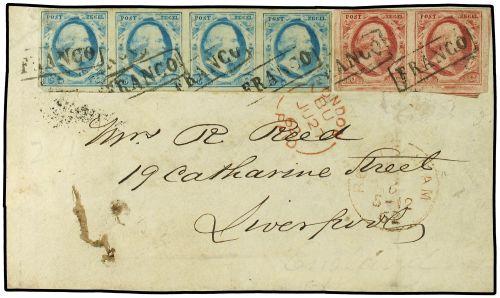 POST ZEGEL POST ZEGEL POST ZEGEL POST ZEGEL POST ZEGEL POST ZEGEL
FRANCO FRANCO FRANCO FRANCO FRANCO FRANCO
Mrs R Reed
19 Catharine Street
Liverpool
PAID